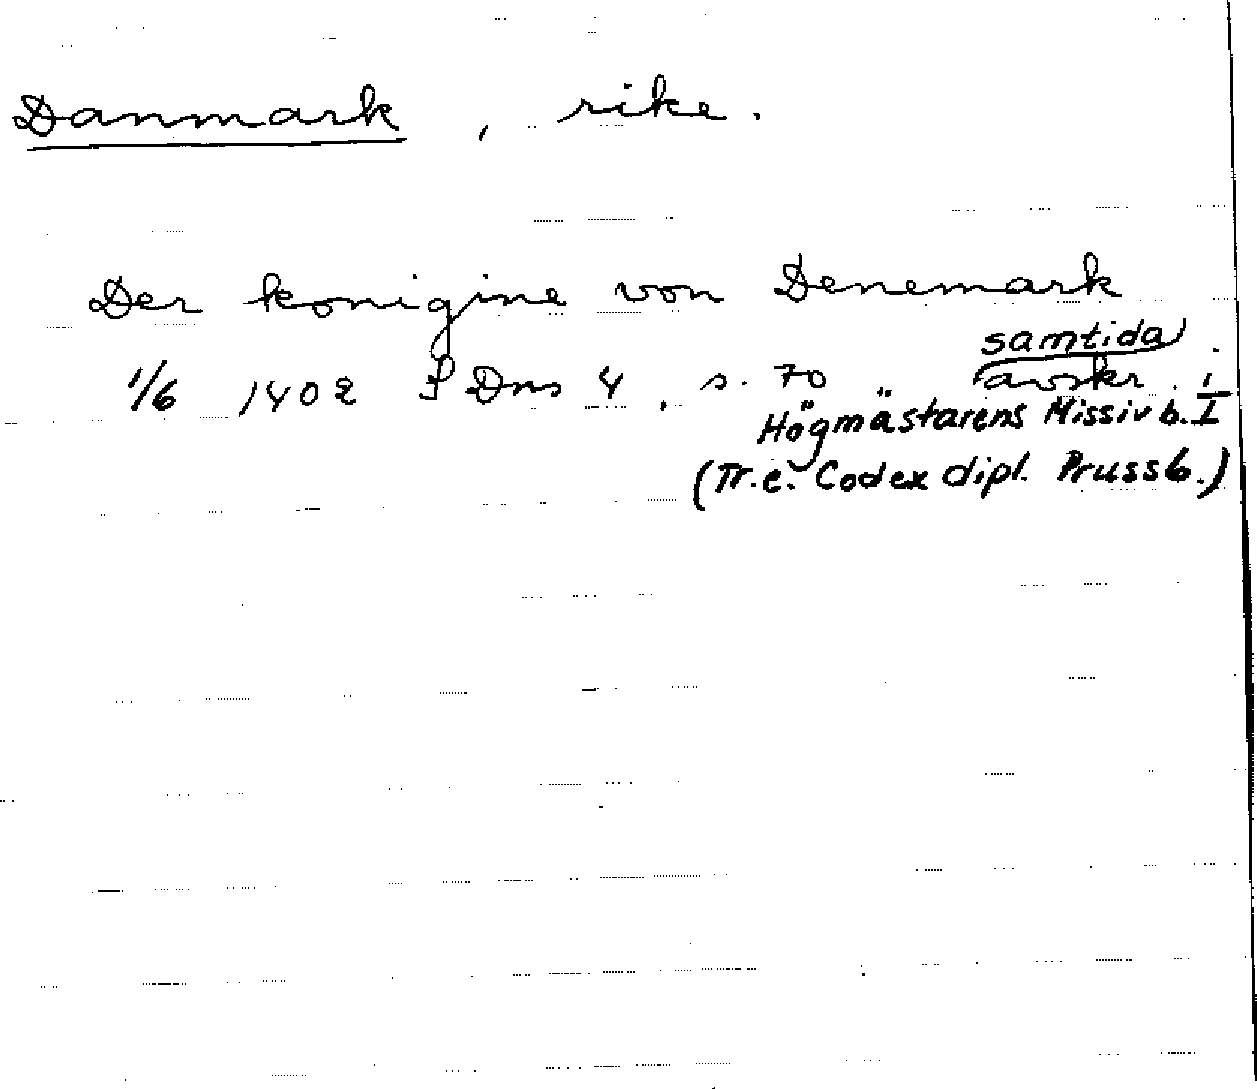 Danmark, rike.
Der konigine von Denemark
samtida
1/6 1402 SDns 4, s. 70 avskr. i
Högmästarens Missiv b. I
(Tr. e. Codex dipl. Pruss 6.)